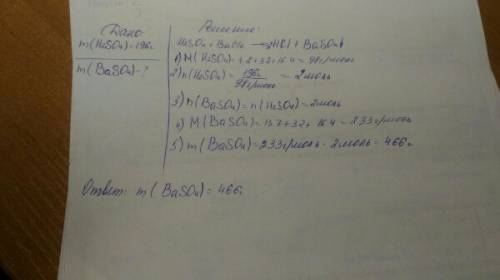 Дано
m(H₂SO₄)=196г
m(BaSO₄)-?
Решение:
H₂SO₄ + BaCl₂ → 2HCl + BaSO₄↓
1) M(H₂SO₄)=1.2+32+16.4=98г/моль
2) n(H₂SO₄)=196г/98г/моль=2моль
3) n(BaSO₄)=n(H₂SO₄)=2моль
4) M(BaSO₄)=137+32+16.4=233г/моль
5) m(BaSO₄)=233г/моль·2моль=466г
Ответ: m(BaSO₄)=466г